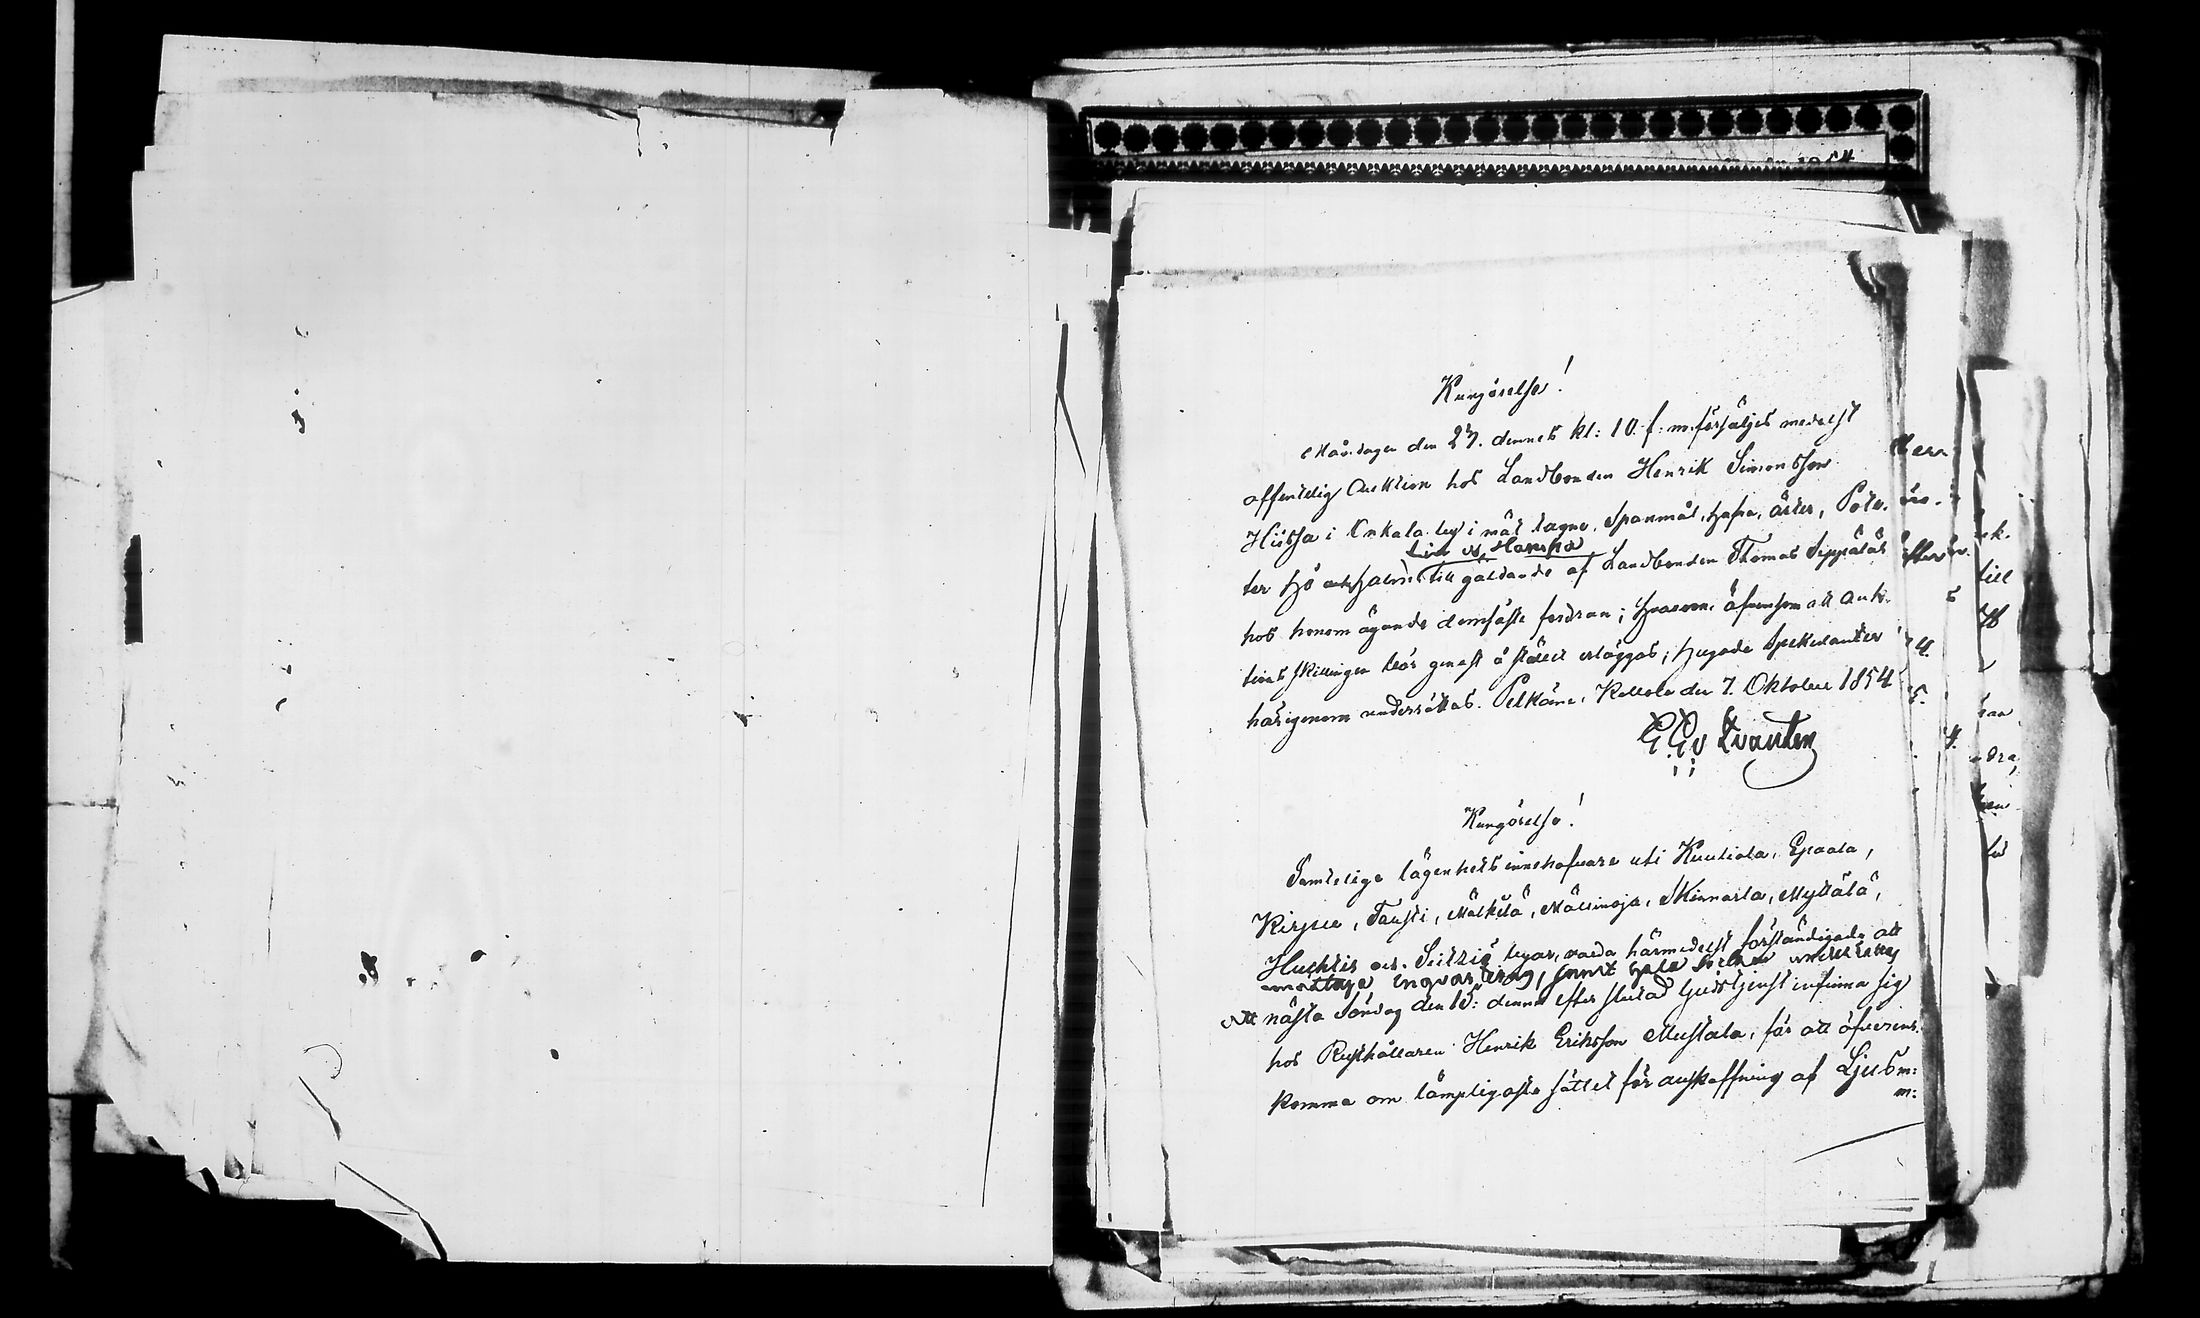 Kungörelse!
Måndagen den 27. dennes kl: 10 f: m: försäljes medelst
offentelig Auktion hos Landbonden Henrik Simonsson
Hiissa i Onkala by i mät tagne, Spanmål, hafra, ärter, Potä-
Lin o. Hampa
ter hö och halm till gäldande af Landbonden Thomas Seppäläs
hos honom ägande domfäste fordran; hvarom, äfvensom att auk-
tions skillingen bör genast å stället erläggas; hugade Spekulanter
härigenom underrättas. Pelkäne, Kollola den 7. Oktober 1854
E. G. v Qvanten
Kungörelse!
Samtelige lägenhets innehafvare uti Kuuliala, Epaala,
Kirpu, Tausti, Mälkilä, Mällinoja, Skinnarla, Myttälä,
Huchtis och Seitzis byar, varda härmedelst förståndigade att
emottaga
Att nästa Söndag den 15: dennes efter slutad Gudstjenst infinna sig
hos Rusthållaren Henrik Eriksson Mustala, för att öfverens-
komma om lämpligaste sättet för anskaffning af Ljus m:
m: